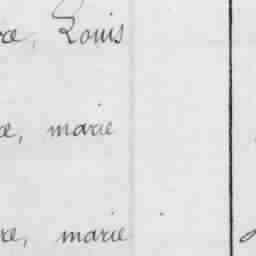 re, Louis
re, marie
re, marie